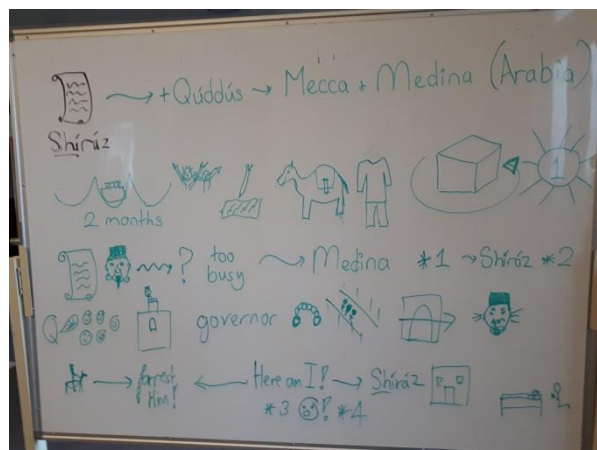 + Quddús → Mecca + Medina (Arabia)
Shíráz
1
2 months
? too busy → Medina *1 → Shíráz *2
Q governor
→ Arrest Him! ← Here am I! → Shíráz
*3 ? *4